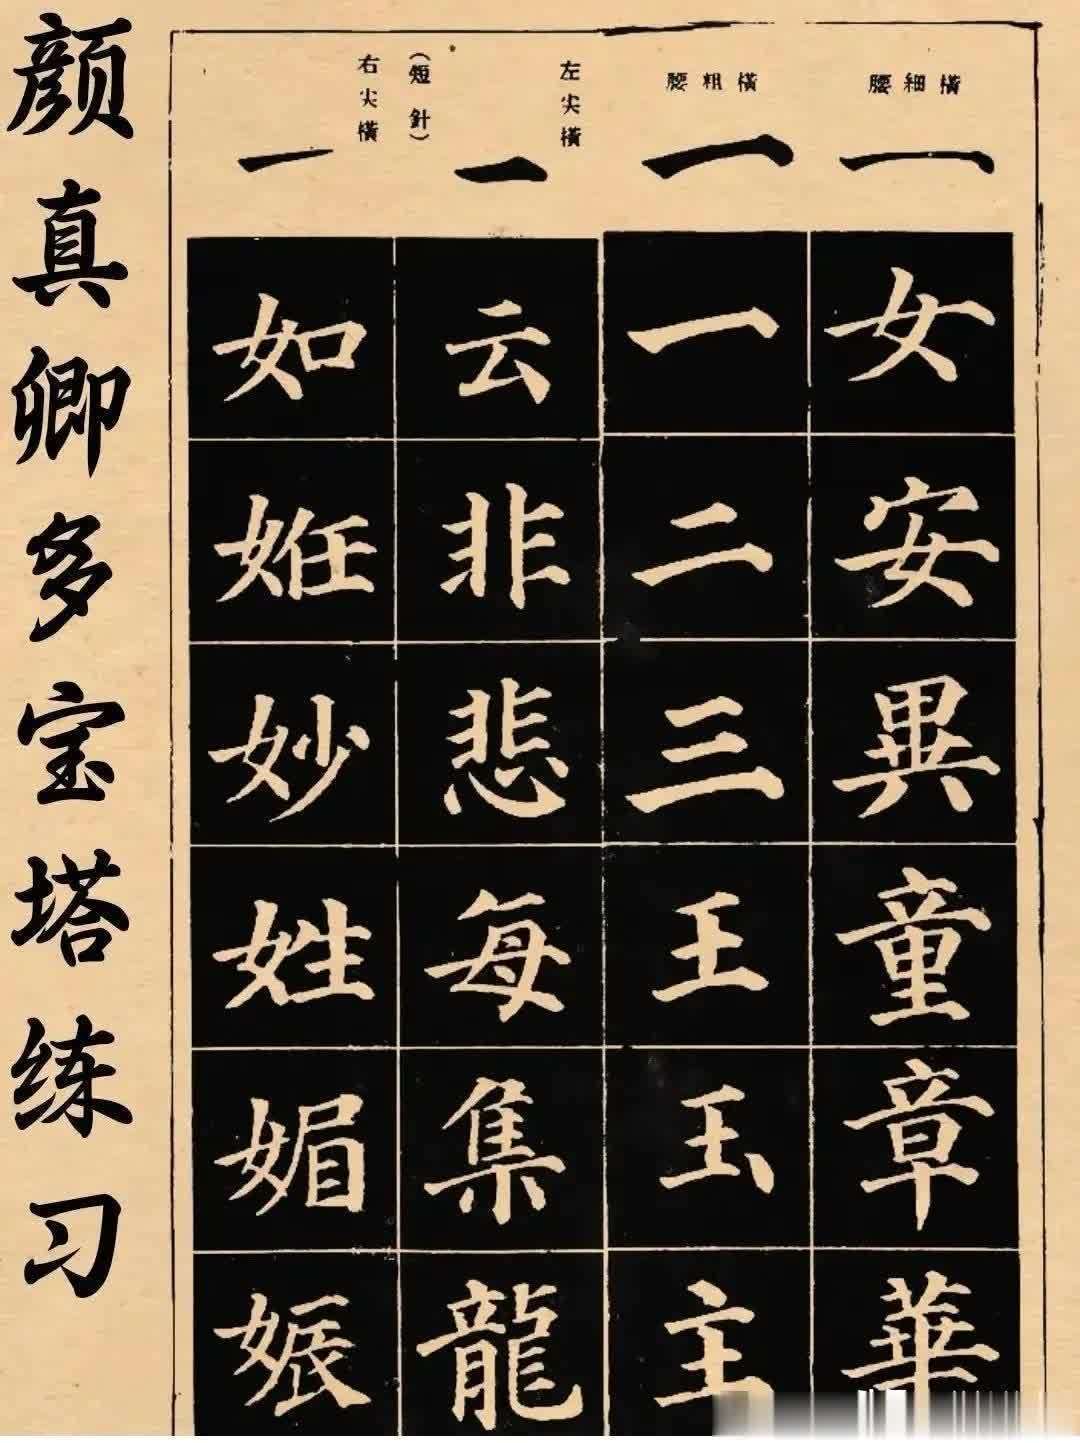 颜真卿多宝塔练习
腰細橫
一
女安異童章華
腰粗橫
一
一二三王玉主
左尖橫
一
(短針)
云非悲每集龍
右尖橫
一
如姙妙姓媚娠